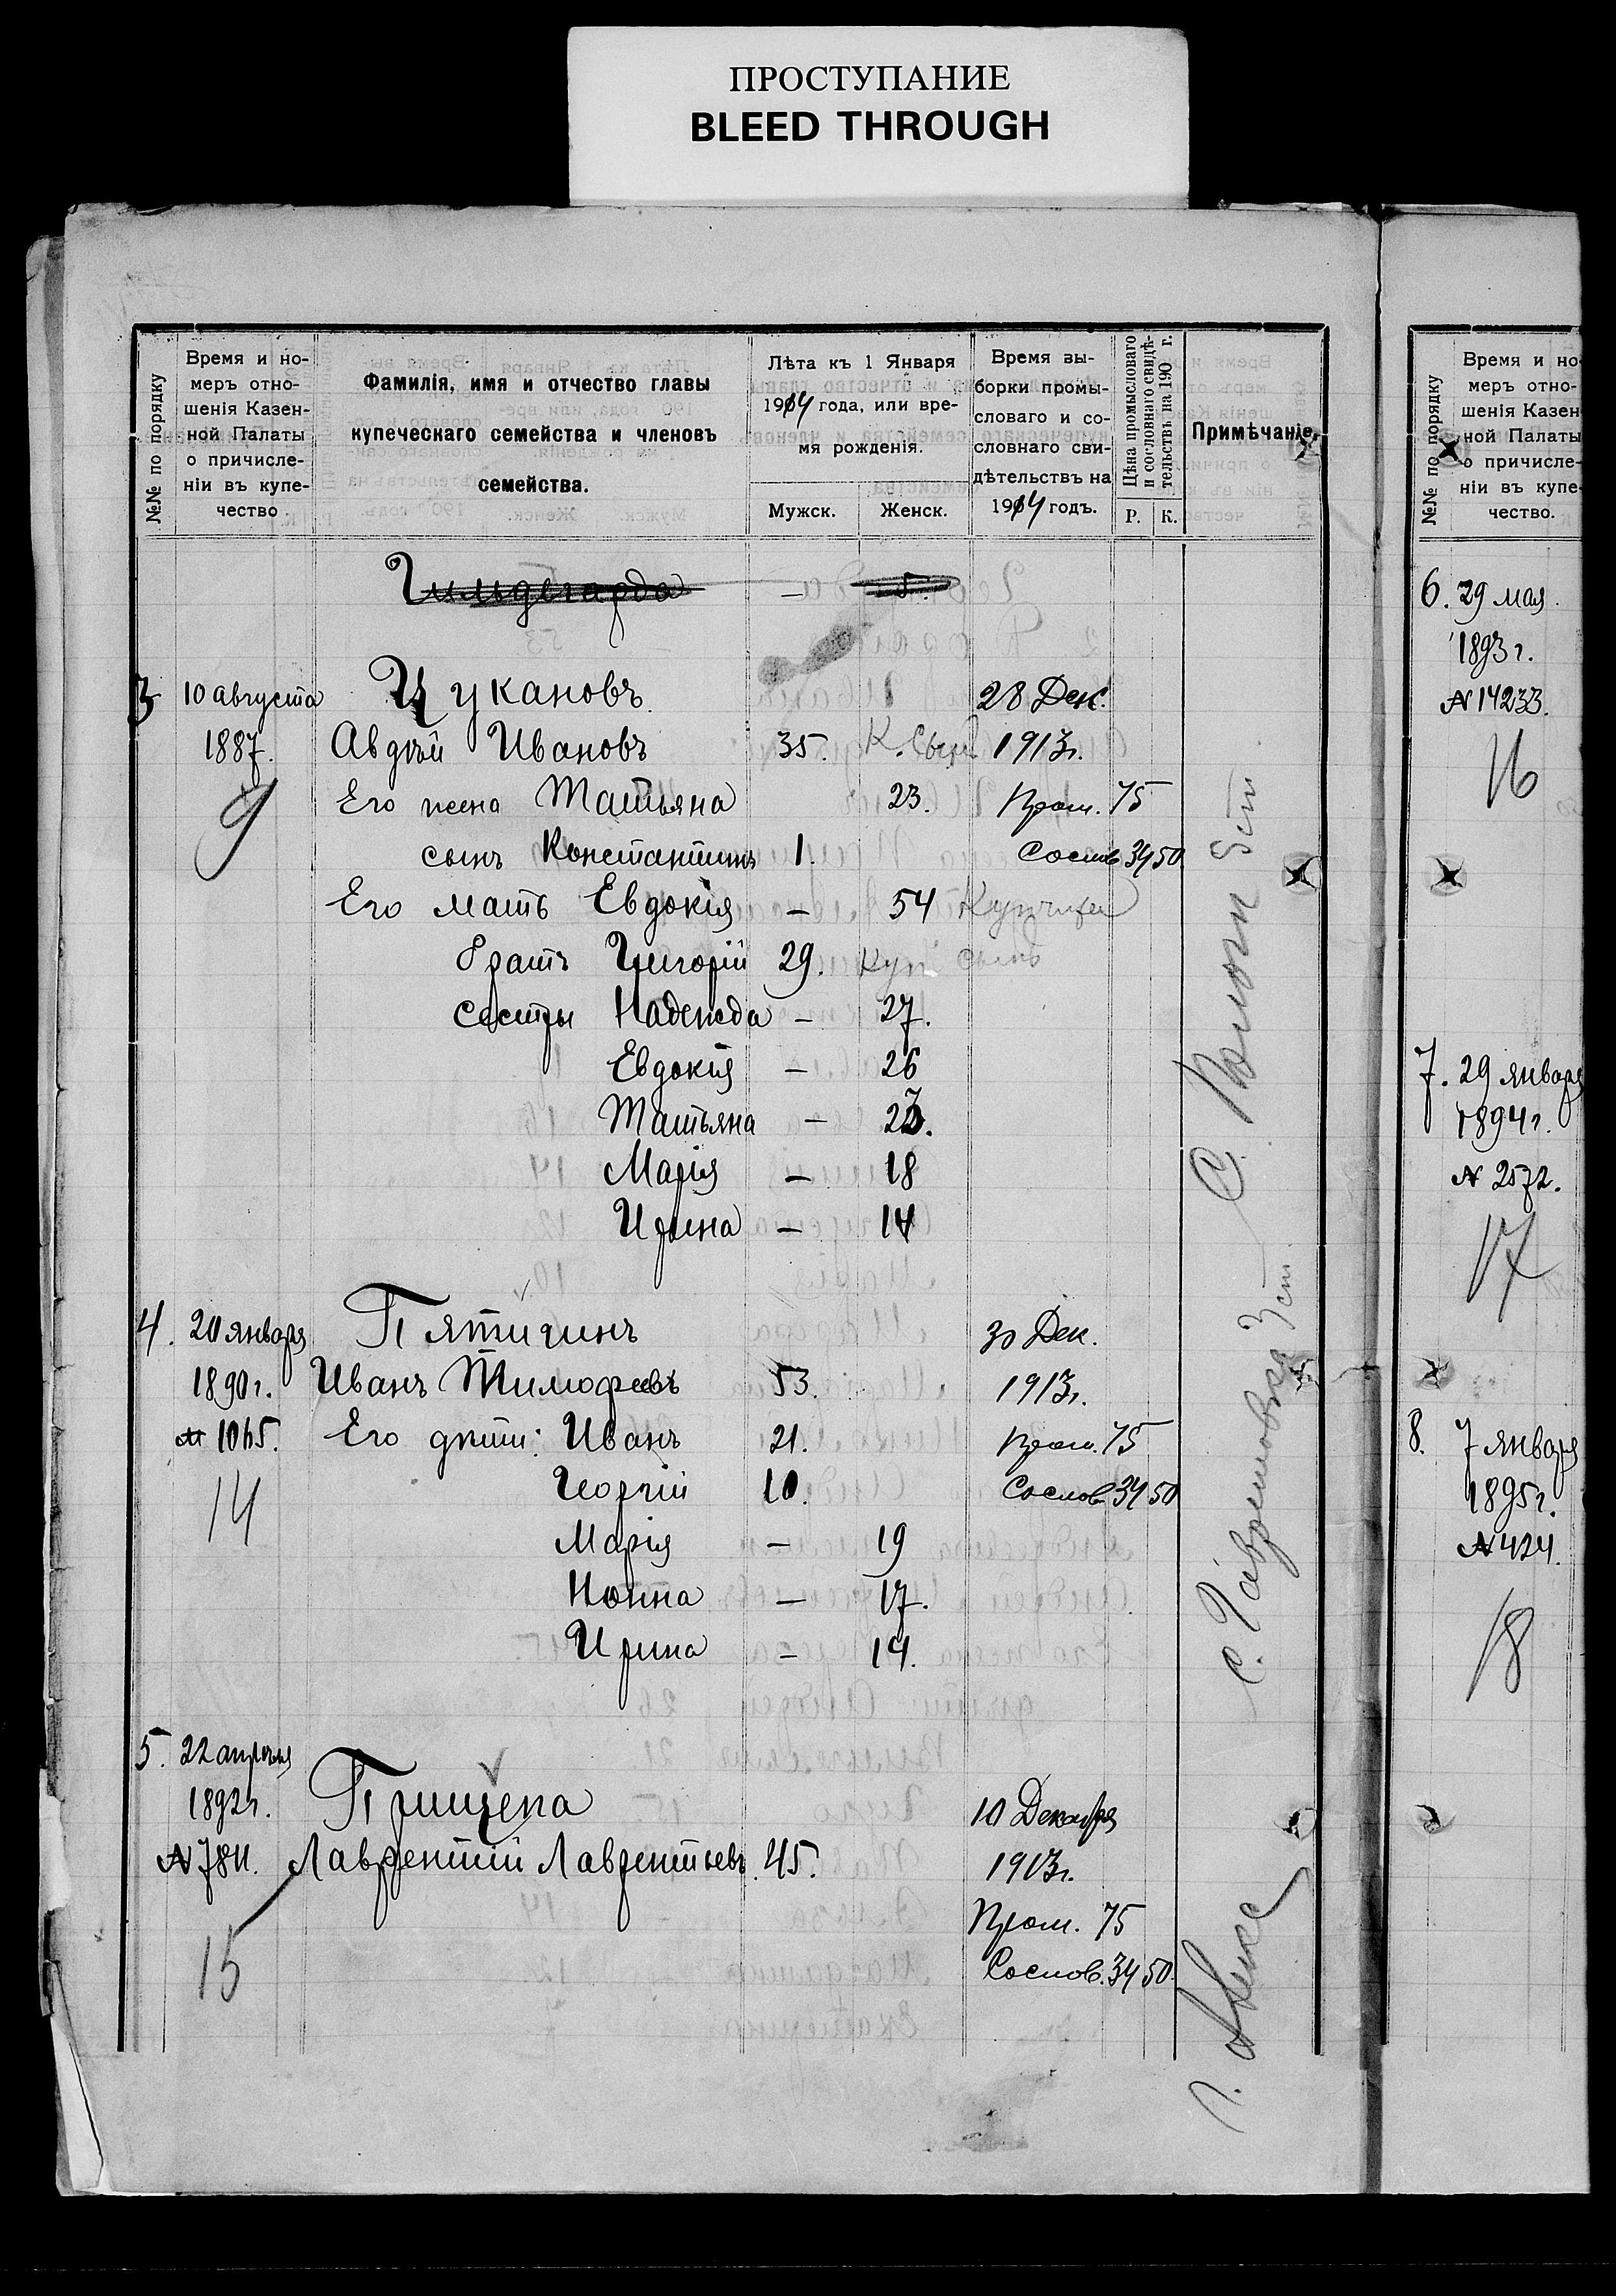 ПРОСТУПАНИЕ
BLEED THROUGH
№№ по порядку
Время и но-
меръ отно-
шенія Казен-
ной Палаты
о причисле-
ніи въ купе-
чество
Фамилія, имя и отчество главы
купеческаго семейства и членовъ
семейства.
Лѣта къ 1 Января
1914 года, или вре-
мя рожденія.
Мужск. Женск.
Время вы-
борки промы-
словаго и со-
словнаго сви-
дѣтельствъ на
1914 годъ.
Цѣна промысловаго
и сословнаго свидѣ-
тельствъ на 190 г.
Р. К.
Примѣчаніе.
Гильдегарда — 5.
3 10 августа Цукановъ 28 Дек.
1887. Авдѣй Ивановъ 35. К. Сынъ 1913г.
9 Его жена Татьяна 23. Пром. 75
сынъ Константинъ 1. Сослов 34 50
Его мать Евдокія — 54
братъ Григорій 29. куп сынъ
сестры Надежда — 27.
Евдокія — 26
Татьяна — 23.
Марія — 18
Ирина — 14
4. 20 января Пятигинъ 30 Дек.
1890г. Иванъ Тимофеевъ 53. 1913г.
№ 1065. Его дѣти: Иванъ 21. Пром. 75
14 Георгій 10. Сослов. 34 50
Марія — 19
Нонна — 17.
Ирина — 14.
5. 22 апрѣля Прищепа 10 Декабря
1892г. Лаврентій Лаврентьевъ. 45. 1913г.
№ 7811.
15
Пром. 75
Сослов. 34 50.
№№ по порядку
Время и но
меръ отно-
шенія Казен
ной Палаты
о причисле-
ніи въ купе-
чество.
6. 29 мая
1893г.
№ 14233.
16
7. 29 января
1894г.
№ 2572.
17
8. 7 января
1895г.
№ 424.
18